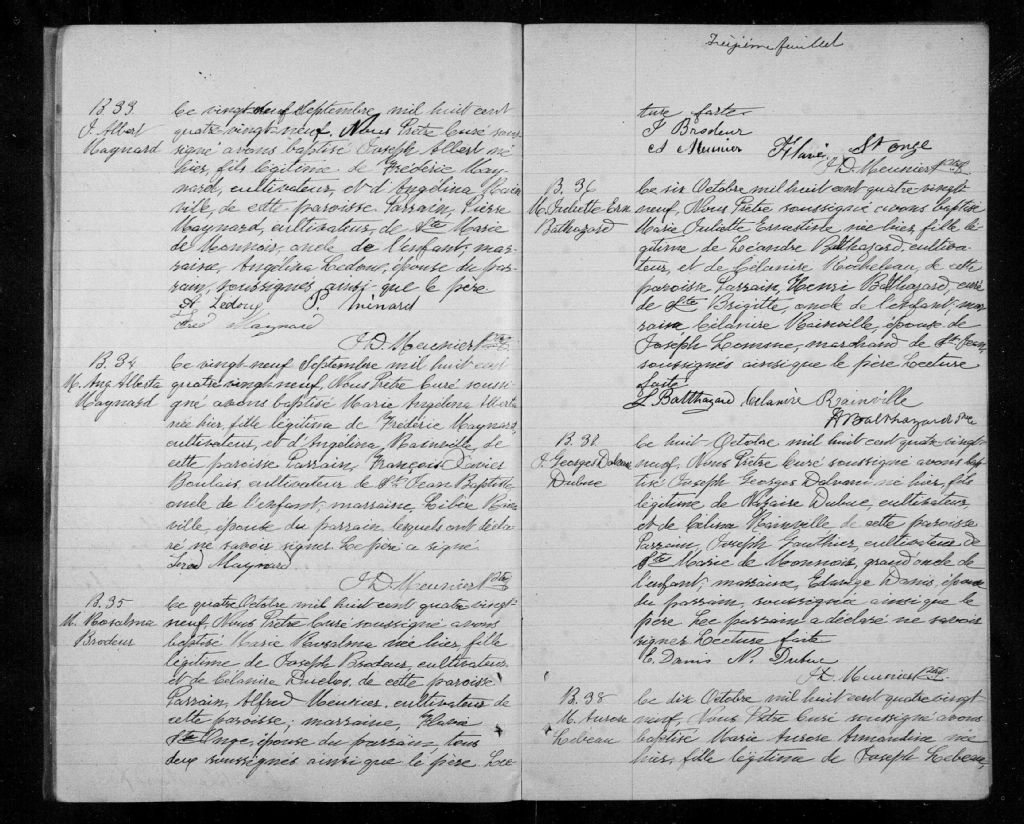 B. 33
J. Albert
Maynard
Ce vingt-neuf Septembre mil huit cent
quatre vingt-neuf, Nous Prêtre Curé sous-
signé avons baptisé Joseph Albert né
hier, fils légitime de Frédéric May-
nard, cultivateur, et d'Angélina Rain-
ville, de cette paroisse. Parrain, Pierre
Maynard, cultivateur, de Ste Marie
de Monnoir, oncle de l'enfant; mar-
raine, Angélina Ledoux, épouse du par-
rain, soussignés ainsi que le père
A. Ledoux P. Ménard
Fred Maynard
J. D. Meunier Ptre
B. 34
M. Ang. Alberta
Maynard
Ce vingt-neuf Septembre mil huit cent
quatre vingt-neuf, Nous Prêtre Curé soussi-
gné avons baptisé Marie Angélina Alberta
née hier, fille légitime de Frédéric Maynard
cultivateur, et d'Angélina Rainville, de
cette paroisse Parrain, François Xavier
Boulais, cultivateur de St Jean Baptiste
oncle de l'enfant; marraine, Rain-
ville épouse du parrain lesquels ont décla-
ré ne savoir signer. Le père a signé
Fred Maynard
J. D. Meunier Ptre
B. 35
M. Rosalma
Brodeur
Ce quatre Octobre mil huit cent quatre vingt-
neuf, Nous Prêtre Curé soussigné avons
baptisé Marie Rosalma née hier, fille
légitime de Joseph Brodeur, cultivateur
et de Célanira Duclos de cette paroisse
Parrain, Alfred Meunier, cultivateur de
cette paroisse; marraine, Flavie
St Onge, épouse du parrain tous
deux soussignés ainsi que le père Lec
Treizième feuillet
ture faite
J Brodeur
A Meunier Flavie St onge
J. D. Meunier Ptre
B. 36
M. Juliette Ern
Balthazard
Ce six Octobre mil huit cent quatre vingt
neuf, Nous Prêtre soussigné avons baptisé
Marie Juliette Ernestine née hier, fille lé-
gitime de Léandre Balthazard, cultiva-
teur, et de Célanire Rocheleau, de cette
paroisse Parrain, Henri Balthazard, curé
de Ste Brigitte, oncle de l'enfant; mar-
raine Célanire Rainville, épouse de
Joseph Lemme, marchand de St Jean,
soussignés ainsi que le père Lecture
faite
L Balthazard Célanire Rainville
H Balthazard Ptre
B. 38
J. Georges
Dubuc
Ce huit Octobre mil huit cent quatre vingt-
neuf, Nous Prêtre Curé soussigné avons bap-
tisé Joseph Georges né hier, fils
légitime de Nazaire Dubuc, cultivateur
et de Célina Rainville de cette paroisse
Parrain, Joseph Gauthier, cultivateur de
Ste Marie de Monnoir, grand'oncle de
l'enfant; marraine, Edwige Danis, épouse
du parrain, soussignée ainsi que le
père Lec parrain a déclaré ne savoir
signer Lecture faite
E. Danis N. Dubuc
J. D. Meunier Ptre
B. 38
M. Aurore
Lebeau
Ce dix Octobre mil huit cent quatre vingt
neuf, Nous Prêtre Curé soussigné avons
baptisé Marie Aurore Armandine née
hier, fille légitime de Joseph Lebeau,